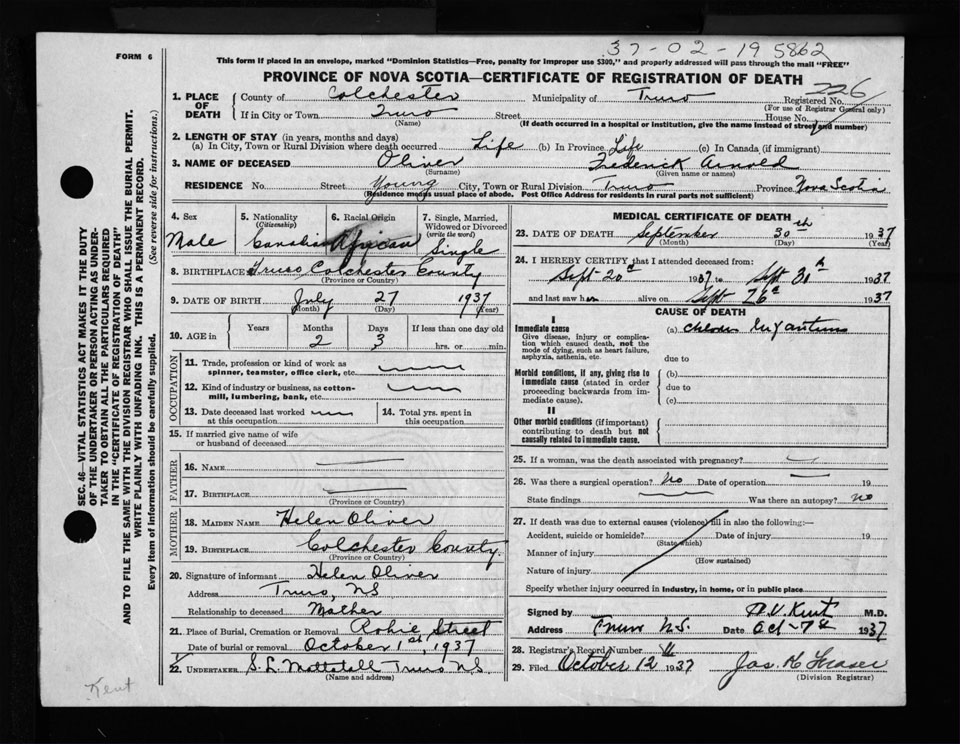 37-02-19 5862
FORM 6
This form if placed in an envelope, marked "Dominion Statistics—Free, penalty for improper use $300," and properly addressed will pass through the mail "FREE"
PROVINCE OF NOVA SCOTIA—CERTIFICATE OF REGISTRATION OF DEATH
226
1. PLACE OF DEATH County of Colchester Municipality of Truro Registered No.
(For use of Registrar General only)
If in City or Town Truro Street House No.
(Name) (If death occurred in a hospital or institution, give the name instead of street and number)
2. LENGTH OF STAY (in years, months and days)
(a) In City, Town or Rural Division where death occurred Life (b) In Province Life (c) In Canada (if immigrant)
3. NAME OF DECEASED Oliver Frederick Arnold
(Surname) (Given name or names)
RESIDENCE No. Street Young City, Town or Rural Division Truro Province Nova Scotia
(Residence means usual place of abode. Post Office Address for residents in rural parts not sufficient)
4. Sex 5. Nationality 6. Racial Origin 7. Single, Married,
(Citizenship) Widowed or Divorced
(write the word)
Male Canadian African Single
8. BIRTHPLACE Truro Colchester County
(Province or County)
9. DATE OF BIRTH July 27 1937
(Month) (Day) (Year)
10. AGE in Years Months Days If less than one day old
2 3 hrs. or min.
OCCUPATION
11. Trade, profession or kind of work as
spinner, teamster, office clerk, etc.
12. Kind of industry or business, as cotton-
mill, lumbering, bank, etc.
13. Date deceased last worked 14. Total yrs. spent in
at this occupation this occupation
15. If married give name of wife
or husband of deceased
FATHER
16. NAME
17. BIRTHPLACE
(Province or Country)
MOTHER
18. MAIDEN NAME Helen Oliver
19. BIRTHPLACE Colchester County.
(Province or Country)
20. Signature of informant Helen Oliver
Address Truro, NS
Relationship to deceased Mother
21. Place of Burial, Cremation or Removal Robie Street
Date of burial or removal October 1st, 1937
22. UNDERTAKER S. L. Mattatall Truro N.S
(Name and address)
Kent
MEDICAL CERTIFICATE OF DEATH
23. DATE OF DEATH September 30th 1937
(Month) (Day) (Year)
24. I HEREBY CERTIFY that I attended deceased from:
Sept 20th 1937 to Sept 30th 1937
and last saw him alive on Sept 26th 1937
CAUSE OF DEATH
I
Immediate cause (a)
Give disease, injury or complica-
tion which caused death, not the
mode of dying, such as heart failure,
asphyxia, asthenia, etc. due to
Morbid conditions, if any, giving rise to (b)
immediate cause (stated in order due to
proceeding backwards from im-
mediate cause). (c)
II
Other morbid conditions (if important)
contributing to death but not
causally related to immediate cause.
25. If a woman, was the death associated with pregnancy?
26. Was there a surgical operation? No Date of operation 19
State findings Was there an autopsy? no
27. If death was due to external causes (violence) fill in also the following:—
Accident, suicide or homicide? Date of injury 19
(State which)
Manner of injury
(How sustained)
Nature of injury
Specify whether injury occurred in industry, in home, or in public place
Signed by Kent M.D.
Address Truro N.S. Date Oct-7th 1937
28. Registrar's Record Number
29. Filed October 12 1937 Jas. H Fraser
(Division Registrar)
SEC. 46—VITAL STATISTICS ACT MAKES IT THE DUTY
OF THE UNDERTAKER OR PERSON ACTING AS UNDER-
TAKER TO OBTAIN ALL THE PARTICULARS REQUIRED
IN THE "CERTIFICATE OF REGISTRATION OF DEATH"
AND TO FILE THE SAME WITH THE DIVISION REGISTRAR WHO SHALL ISSUE THE BURIAL PERMIT.
WRITE PLAINLY WITH UNFADING INK. THIS IS A PERMANENT RECORD.
Every item of information should be carefully supplied. (See reverse side for instructions.)